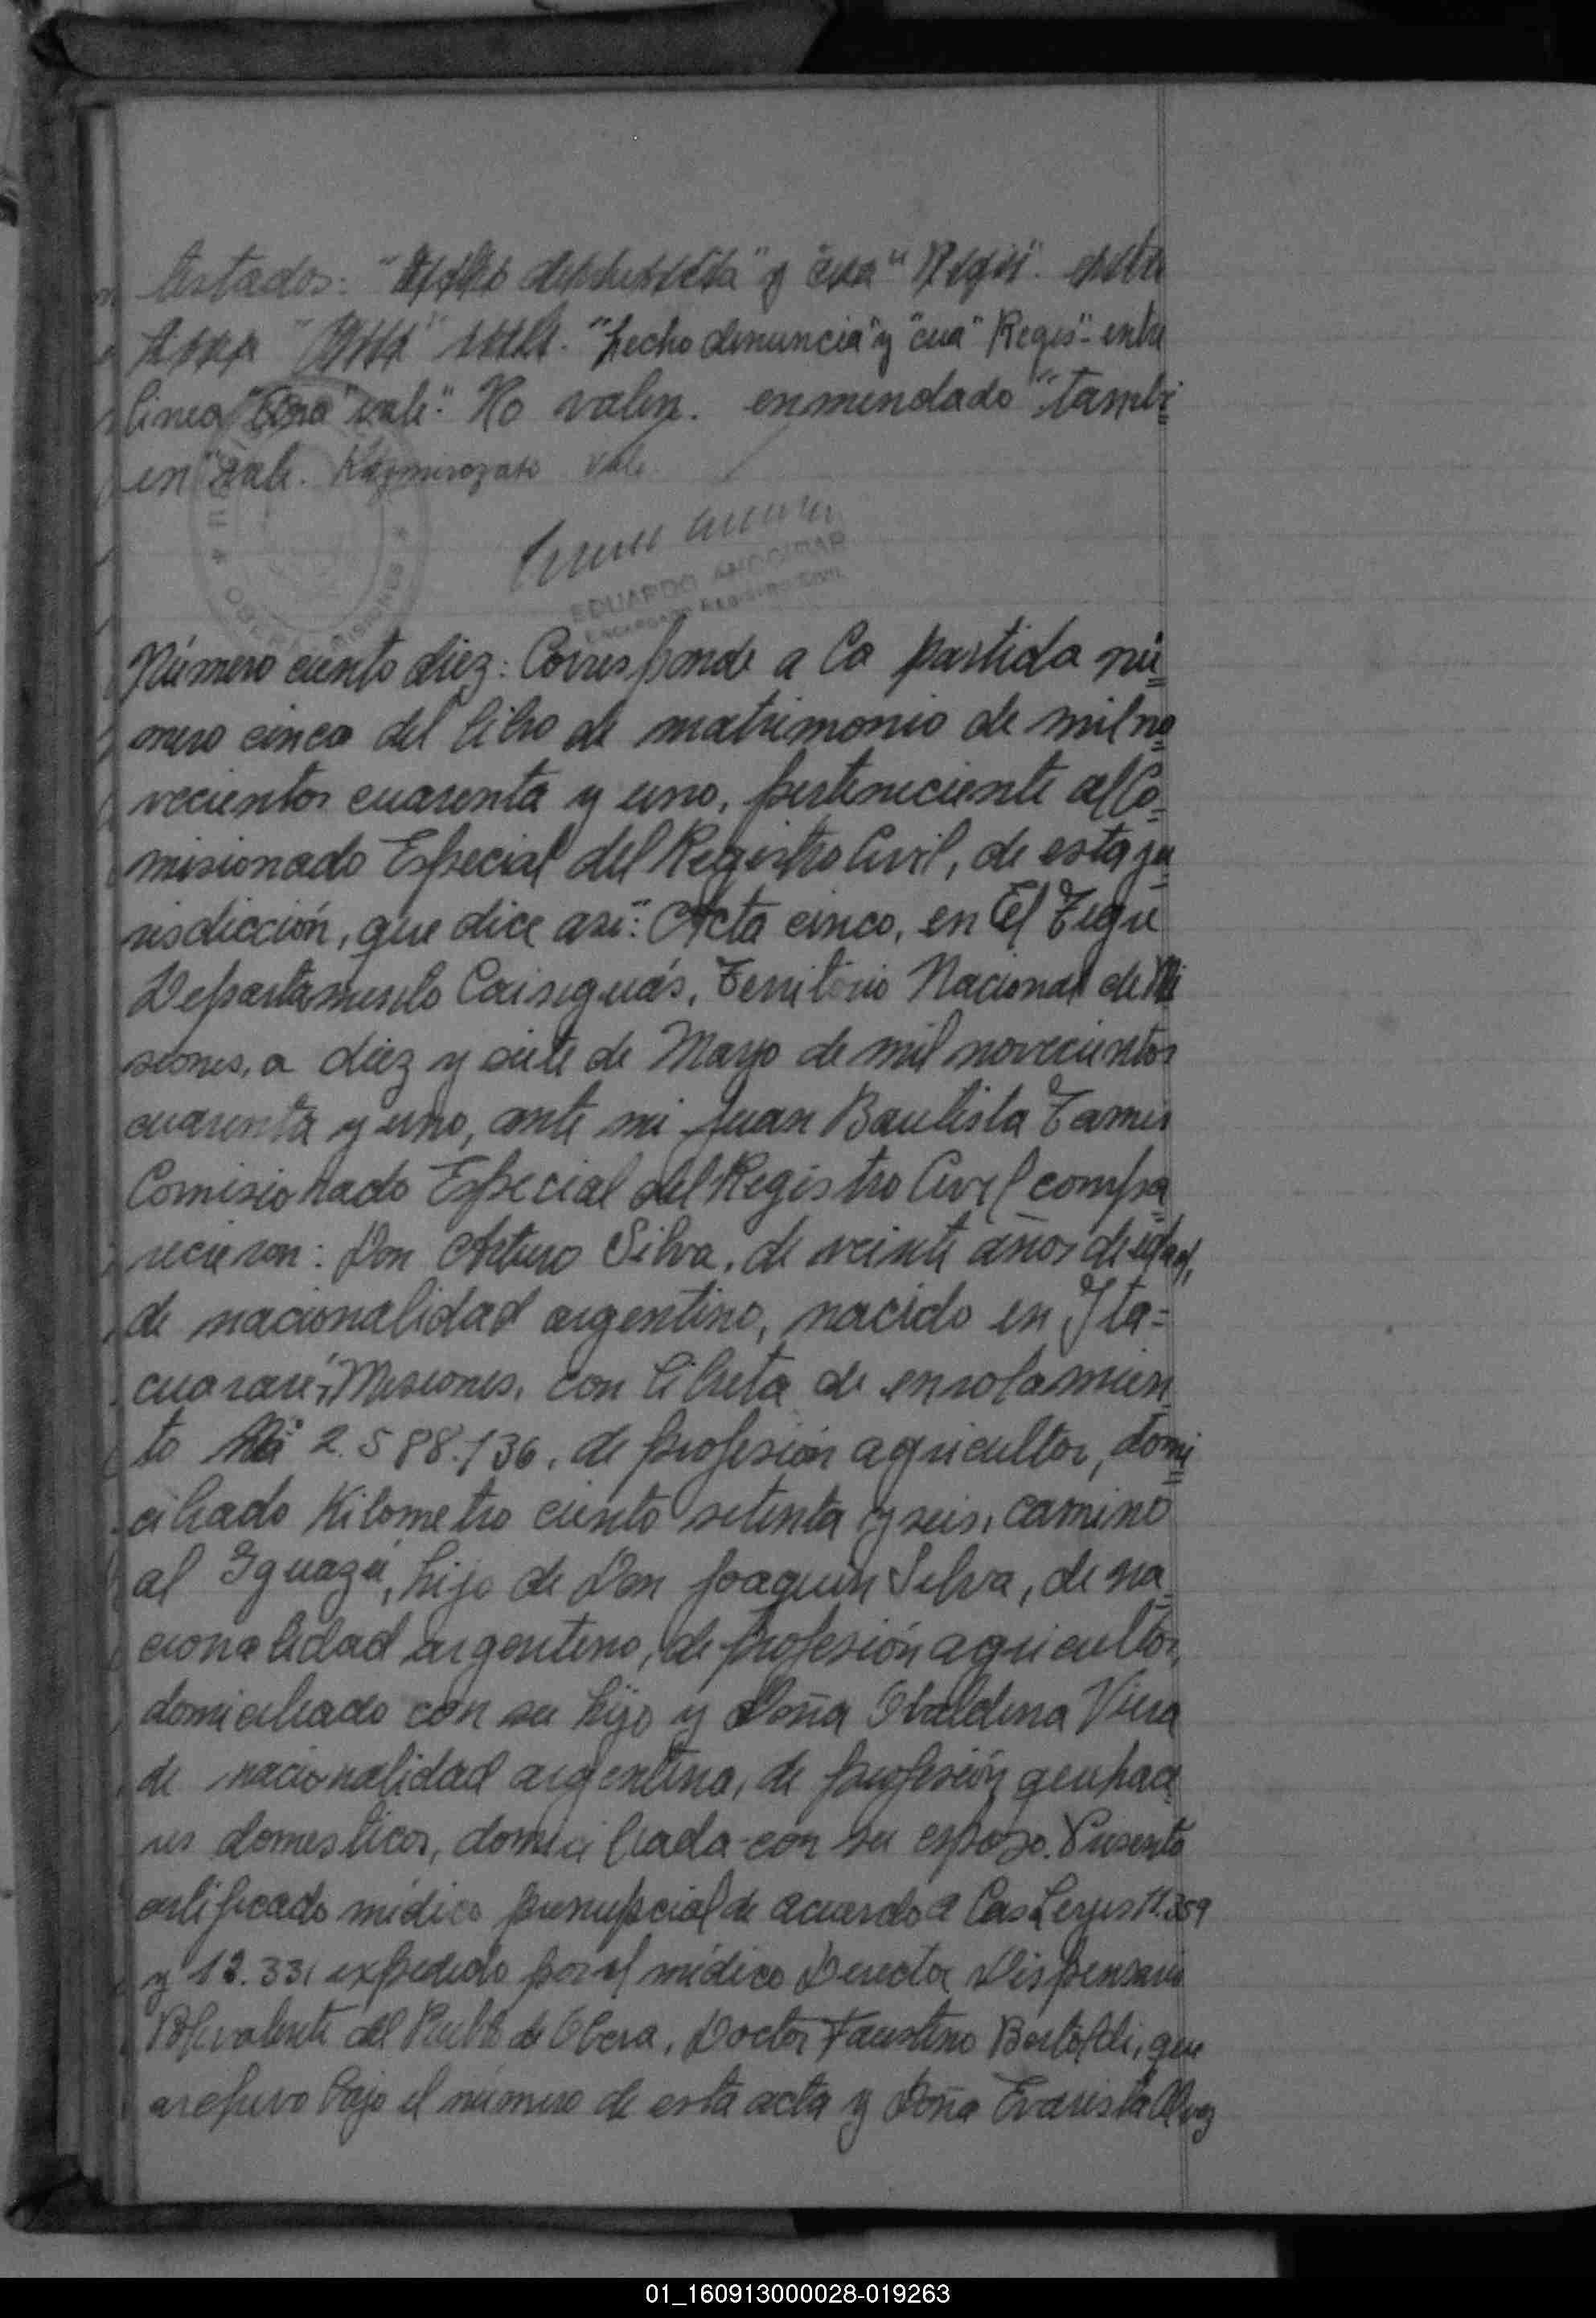 testados: " " y "cua" "Regis". entre
"hecho denuncia" y "cua" Regis"- entre
linea "vale". No valen. enmendado "tambi
en" vale. vale
EDUARDO
ENCARGADO REGISTRO CIVIL
MISIONES
Número ciento diez: Corresponde a la partida nú
mero cinco del libro de matrimonio de mil no
vecientos cuarenta y uno, perteneciente al Co
misionado Especial del Registro Civil, de esta ju
risdicción, que dice así: Acta cinco, en El
Departamento Cainguás, Territorio Nacional de Mi
siones, a diez y siete de Mayo de mil novecientos
cuarenta y uno, ante mi Juan Bautista
Comisionado Especial del Registro Civil compa
recieron: Don Arturo Silva, de veinte años de edad,
de nacionalidad argentino, nacido en Ita-
cuararé, Misiones, con libreta de enrolamien
to 2.588.136, de profesión agricultor, domi
ciliado Kilometro ciento setenta y seis, camino
al Iguazú, hijo de Don Joaquin Silva, de na
cionalidad argentino, de profesión agricultor,
domiciliado con su hijo y Doña Viera
de nacionalidad argentina, de profesión quehace
res domesticos, domiciliada con su esposo. Presentó
certificado médico prenupcial de acuerdo a las Leyes 11.359
y 12.331 expedido por el médico Director Dispensario
Polivalente del Pueblo de Obera, Doctor Faustino Bertoldi, que
archivo bajo el número de esta acta y Doña Evarista
01_160913000028-019263